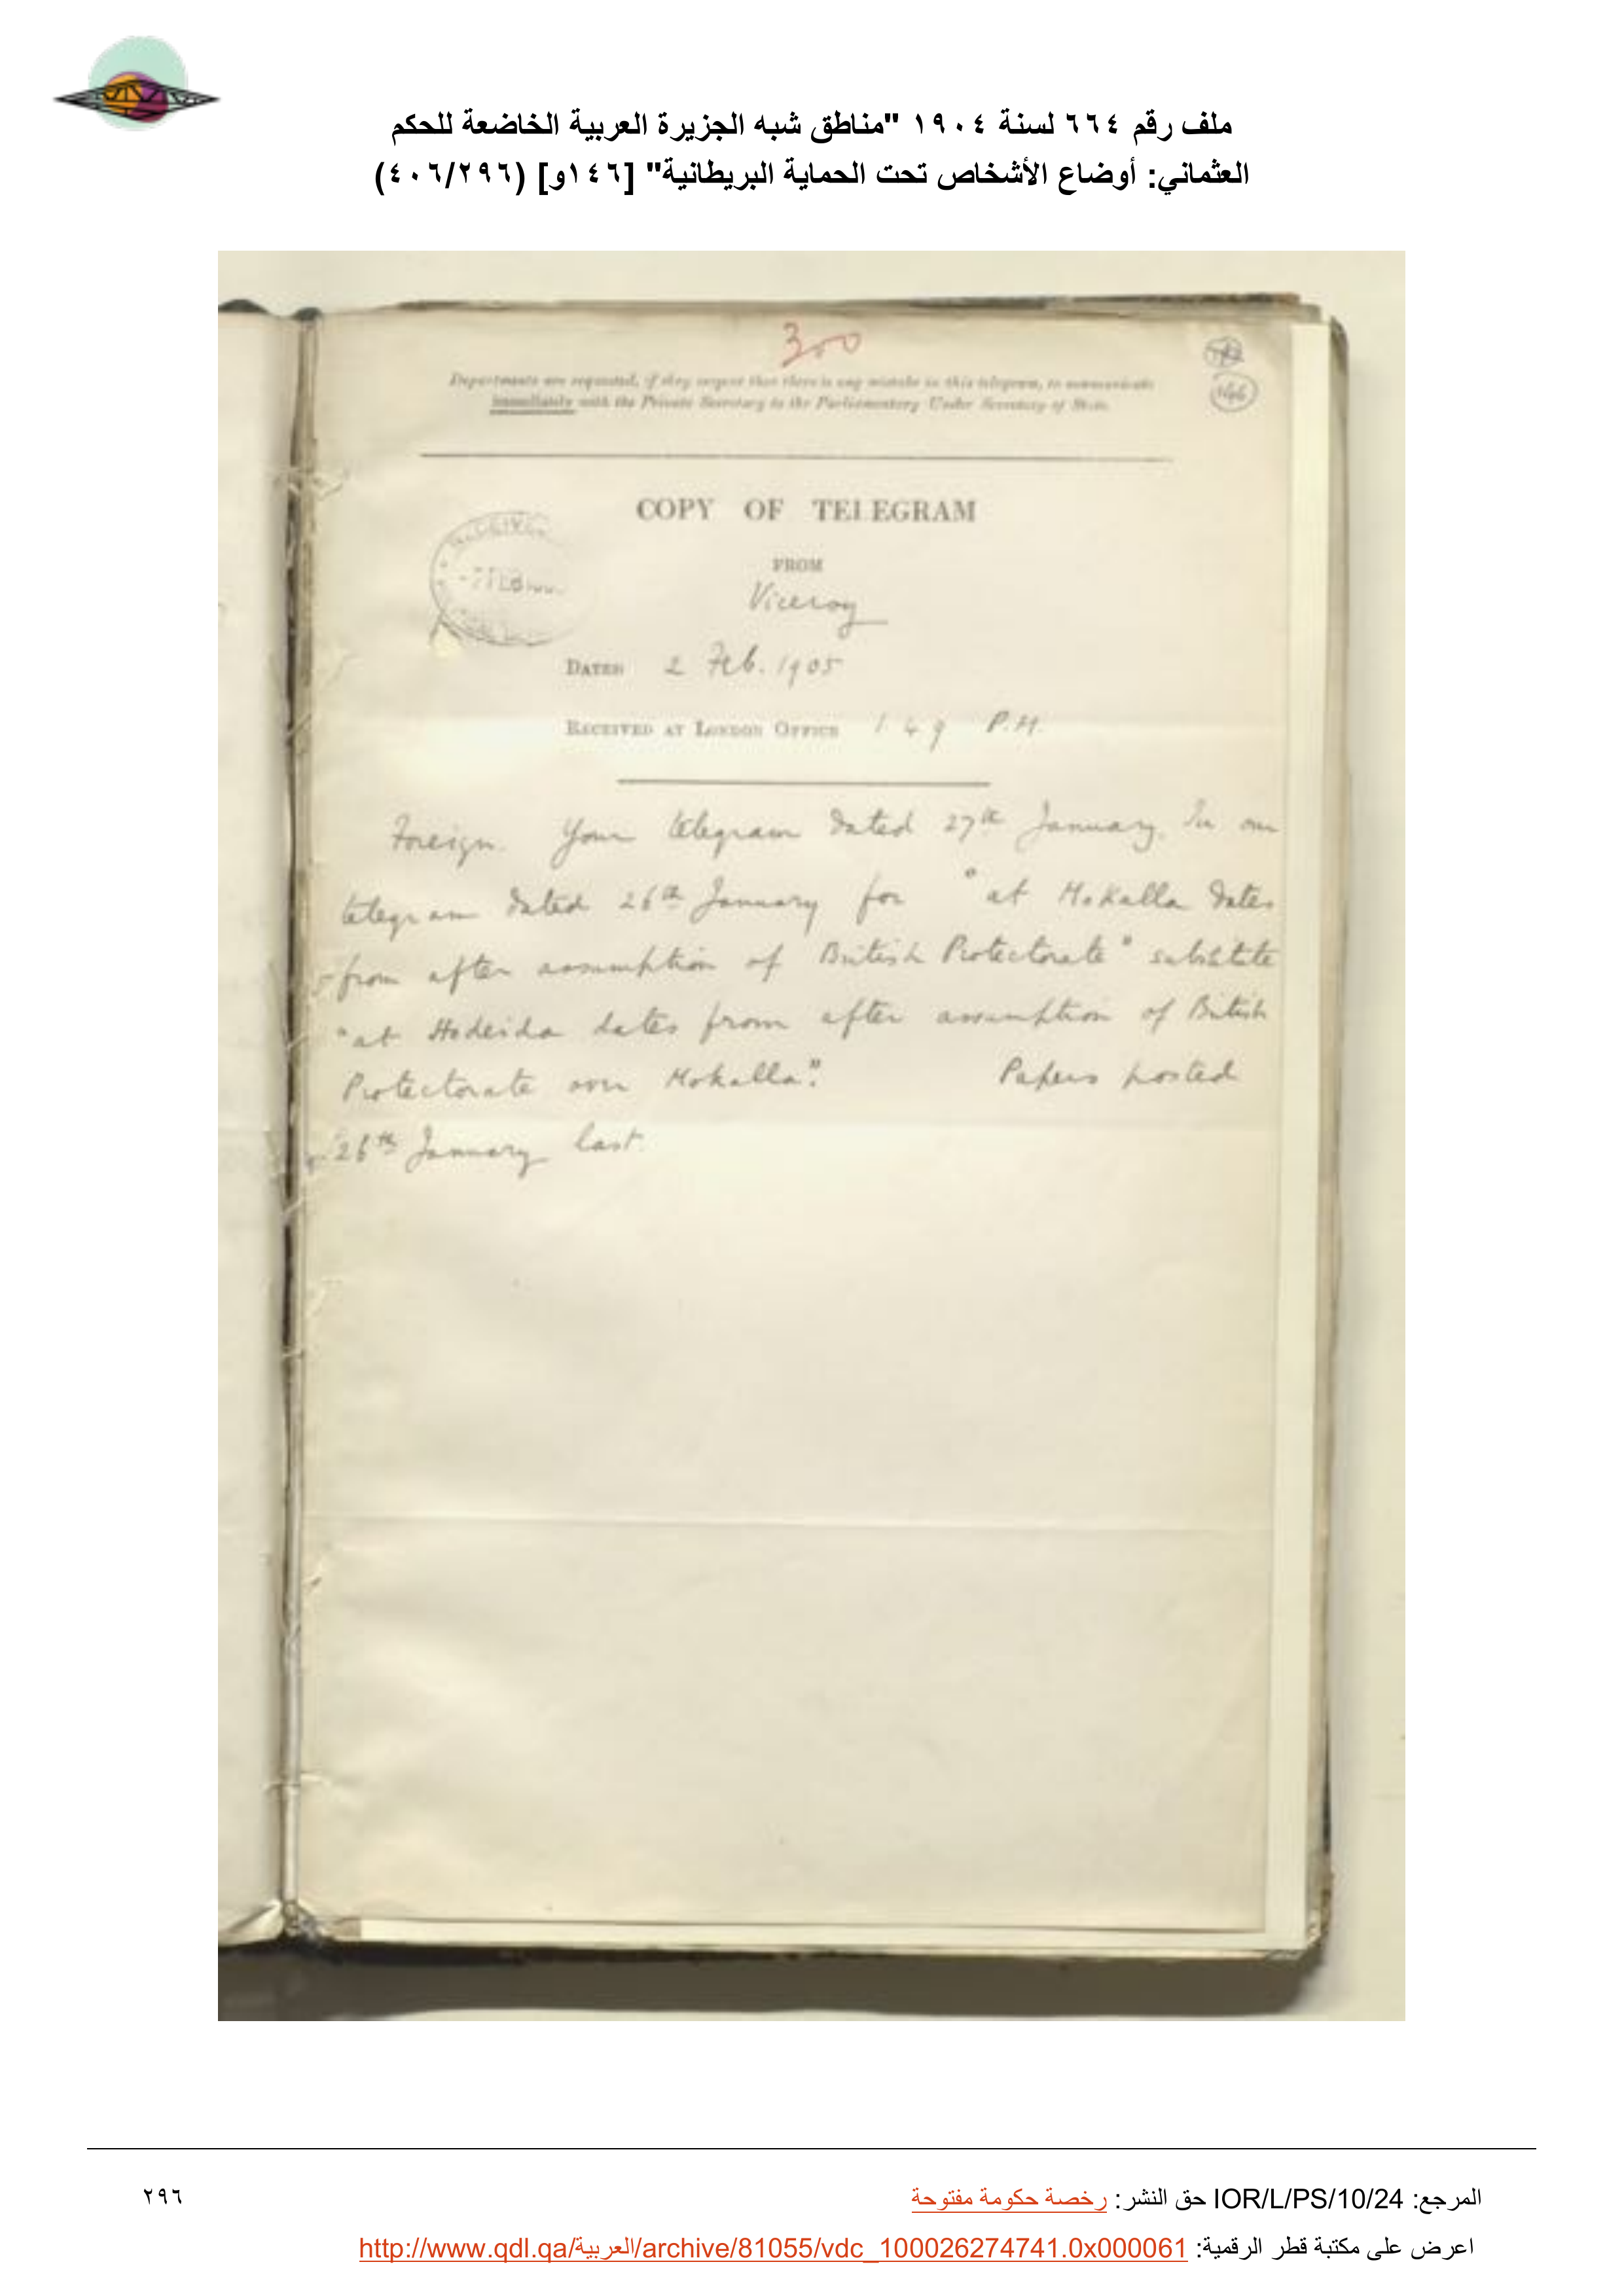 ملف رقم ٦٦٤ لسنة ١٩٠٤ "مناطق شبه الجزيرة العربية الخاضعة للحكم
العثماني: أوضاع الأشخاص تحت الحماية البريطانية" [١٤٦و] (٤٠٦/٢٩٦)
300
146
Departments are requested, if they suspect that there is any mistake in this telegram, to communicate
immediately with the Private Secretary to the Parliamentary Under Secretary of State.
COPY OF TELEGRAM
FROM
Viceroy
7 FEB
DATED 2 Feb. 1905
RECEIVED AT LONDON OFFICE 1 49 P.M.
Foreign. Your telegram dated 27th January. In our
telegram dated 26th January for "at Mokalla dates
from after assumption of British Protectorate" substitute
"at Hodeida dates from after assumption of British
Protectorate over Mokalla". Papers posted
26th January last.
المرجع: IOR/L/PS/10/24 حق النشر: رخصة حكومة مفتوحة
٢٩٦
اعرض على مكتبة قطر الرقمية: http://www.qdl.qa/العربية/archive/81055/vdc_100026274741.0x000061